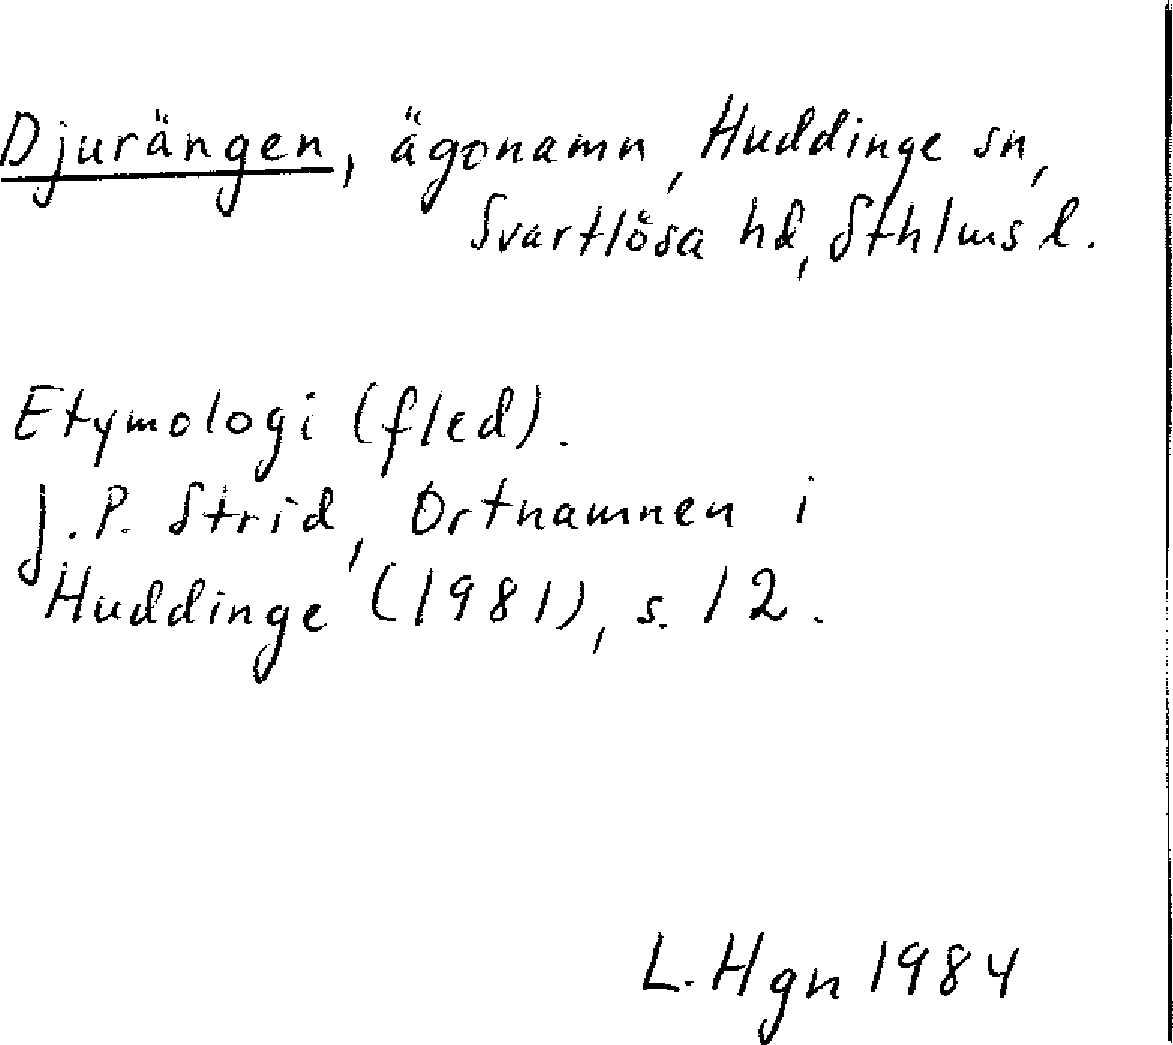 Djurängen, ägonamn, Huddinge sn,
Svartlösa hd, Sthlms l.
Etymologi (fled).
J.P. Strid, Ortnamnen i
Huddinge (1981), s. 12.
L. Hgn 1984